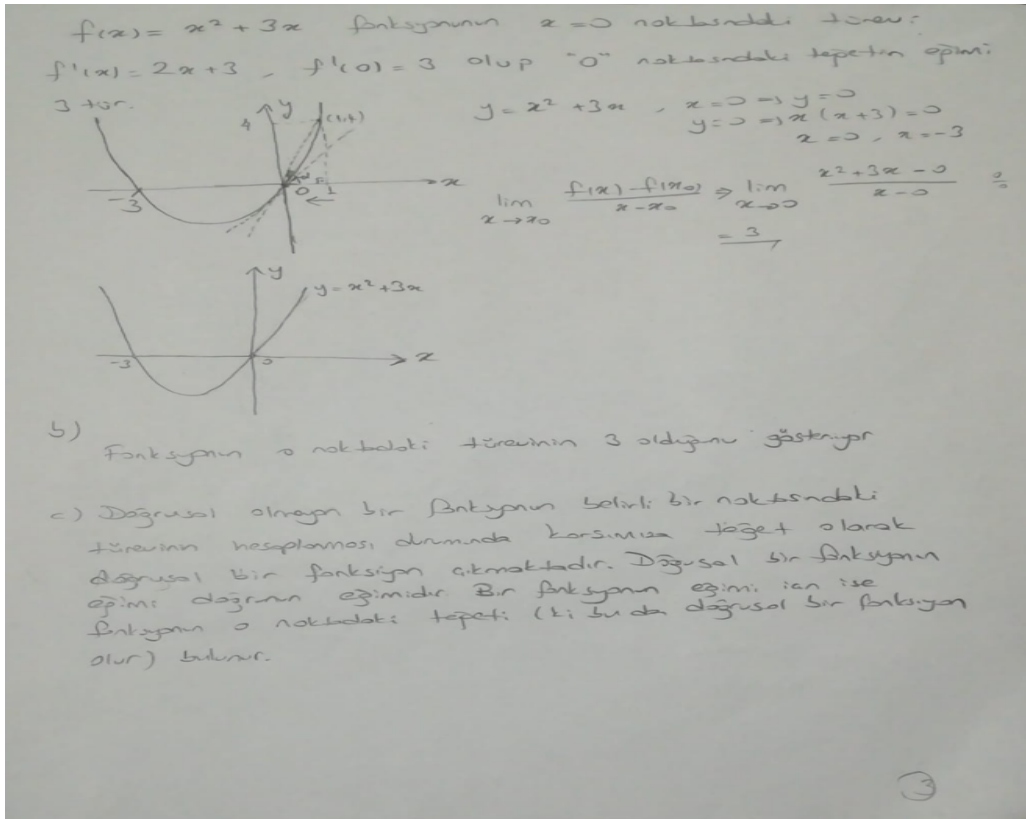 f(x) = x² + 3x fonksiyonunun x=0 noktasındaki türev:
f'(x) = 2x+3 , f'(0) = 3 olup "0" noktasındaki teğetin eğimi
3 tür.
y = x² + 3x , x=0 ⇒ y=0
y=0 ⇒ x(x+3)=0
x=0 , x=-3
y
4
(1,4)
-3
0
1
x
lim x→x0 f(x)-f(x0) / x-x0 ⇒ lim x→0 x²+3x-0 / x-0 0/0
= 3
y
y=x²+3x
-3
0
x
b)
Fonksiyonun o noktadaki türevinin 3 olduğunu gösteriyor
c) Doğrusal olmayan bir fonksyonun belirli bir noktasındaki
türevinin hesaplanması durumunda karşımıza teğet olarak
doğrusal bir fonksiyon çıkmaktadır. Doğrusal bir fonksyonun
eğimi doğrunun eğimidir. Bir fonksyonun eğimi için ise
fonksyonun o noktadaki teğeti (ki bu da doğrusal bir fonksiyon
olur) bulunur.
3